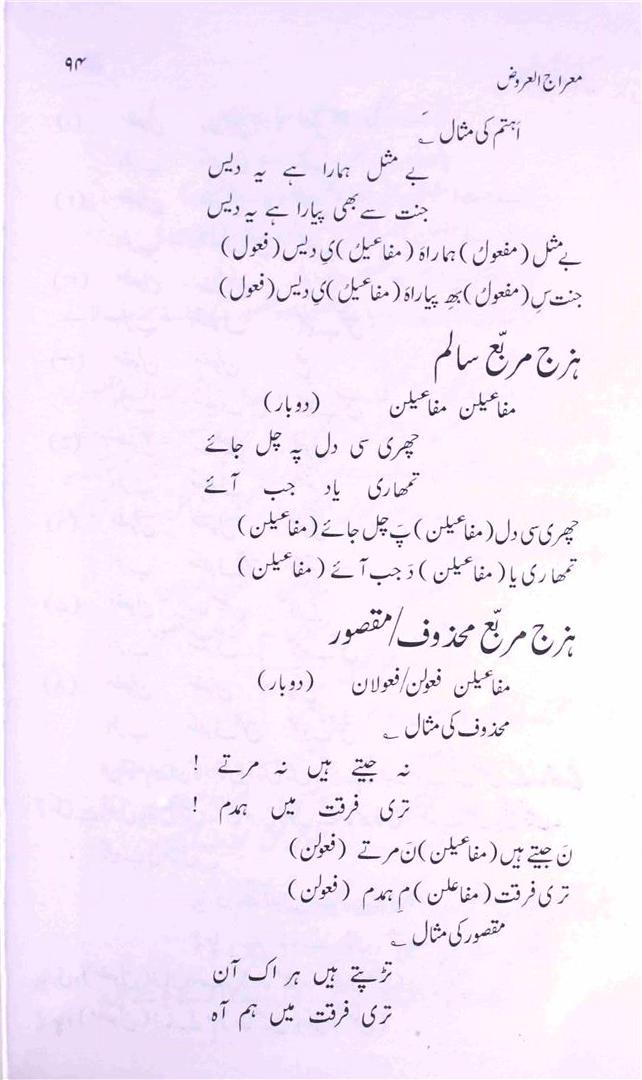 ۹۴
معراج العروض
اَہتم کی مثال ؎
بے مثل ہمارا ہے یہ دیس
جنت سے بھی پیارا ہے یہ دیس
بے مثل (مفعولُ) ہماراہَ (مفاعیلُ) یِ دیس (فعول)
جنت سِ (مفعولُ) بھِ پیاراہَ (مفاعیلُ) یِ دیس (فعول)
ہزج مربّع سالم
مفاعیلن مفاعیلن (دوبار)
چھری سی دل پہ چل جائے
تمھاری یاد جب آئے
چھری سی دل (مفاعیلن) پَ چل جائے (مفاعیلن)
تمھاری یا (مفاعیلن) دَ جب آئے (مفاعیلن)
ہزج مربّع محذوف/مقصور
مفاعیلن فعولن/فعولان (دوبار)
محذوف کی مثال ؎
نہ جیتے ہیں نہ مرتے !
تری فرقت میں ہمدم !
نَ جیتے ہیں (مفاعیلن) نَ مرتے (فعولن)
تری فرقت (مفاعلن) مِ ہمدم (فعولن)
مقصور کی مثال ؎
تڑپتے ہیں ہر اک آن
تری فرقت میں ہم آہ